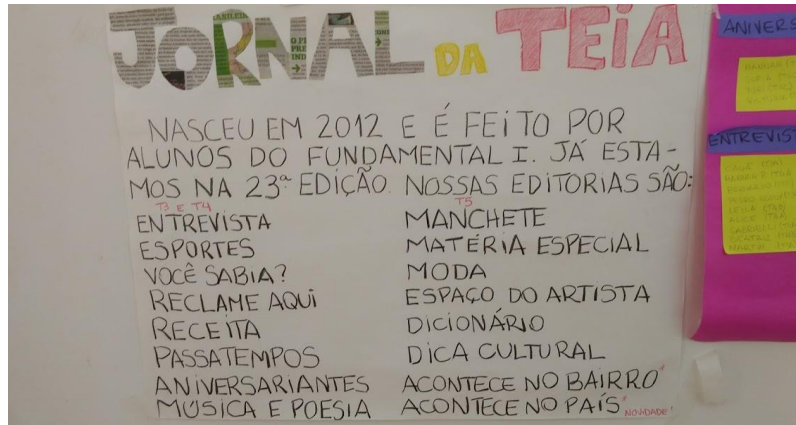 JORNAL DA TEIA
NASCEU EM 2012 E É FEITO POR
ALUNOS DO FUNDAMENTAL I. JÁ ESTA-
MOS NA 23ª EDIÇÃO. NOSSAS EDITORIAS SÃO:
T3 E T4
ENTREVISTA
ESPORTES
VOCÊ SABIA?
RECLAME AQUI
RECEITA
PASSATEMPOS
ANIVERSARIANTES
MÚSICA E POESIA
T5
MANCHETE
MATÉRIA ESPECIAL
MODA
ESPAÇO DO ARTISTA
DICIONÁRIO
DICA CULTURAL
ACONTECE NO BAIRRO*
ACONTECE NO PAÍS* NOVIDADE!
ANIVERS
ENTREVIST